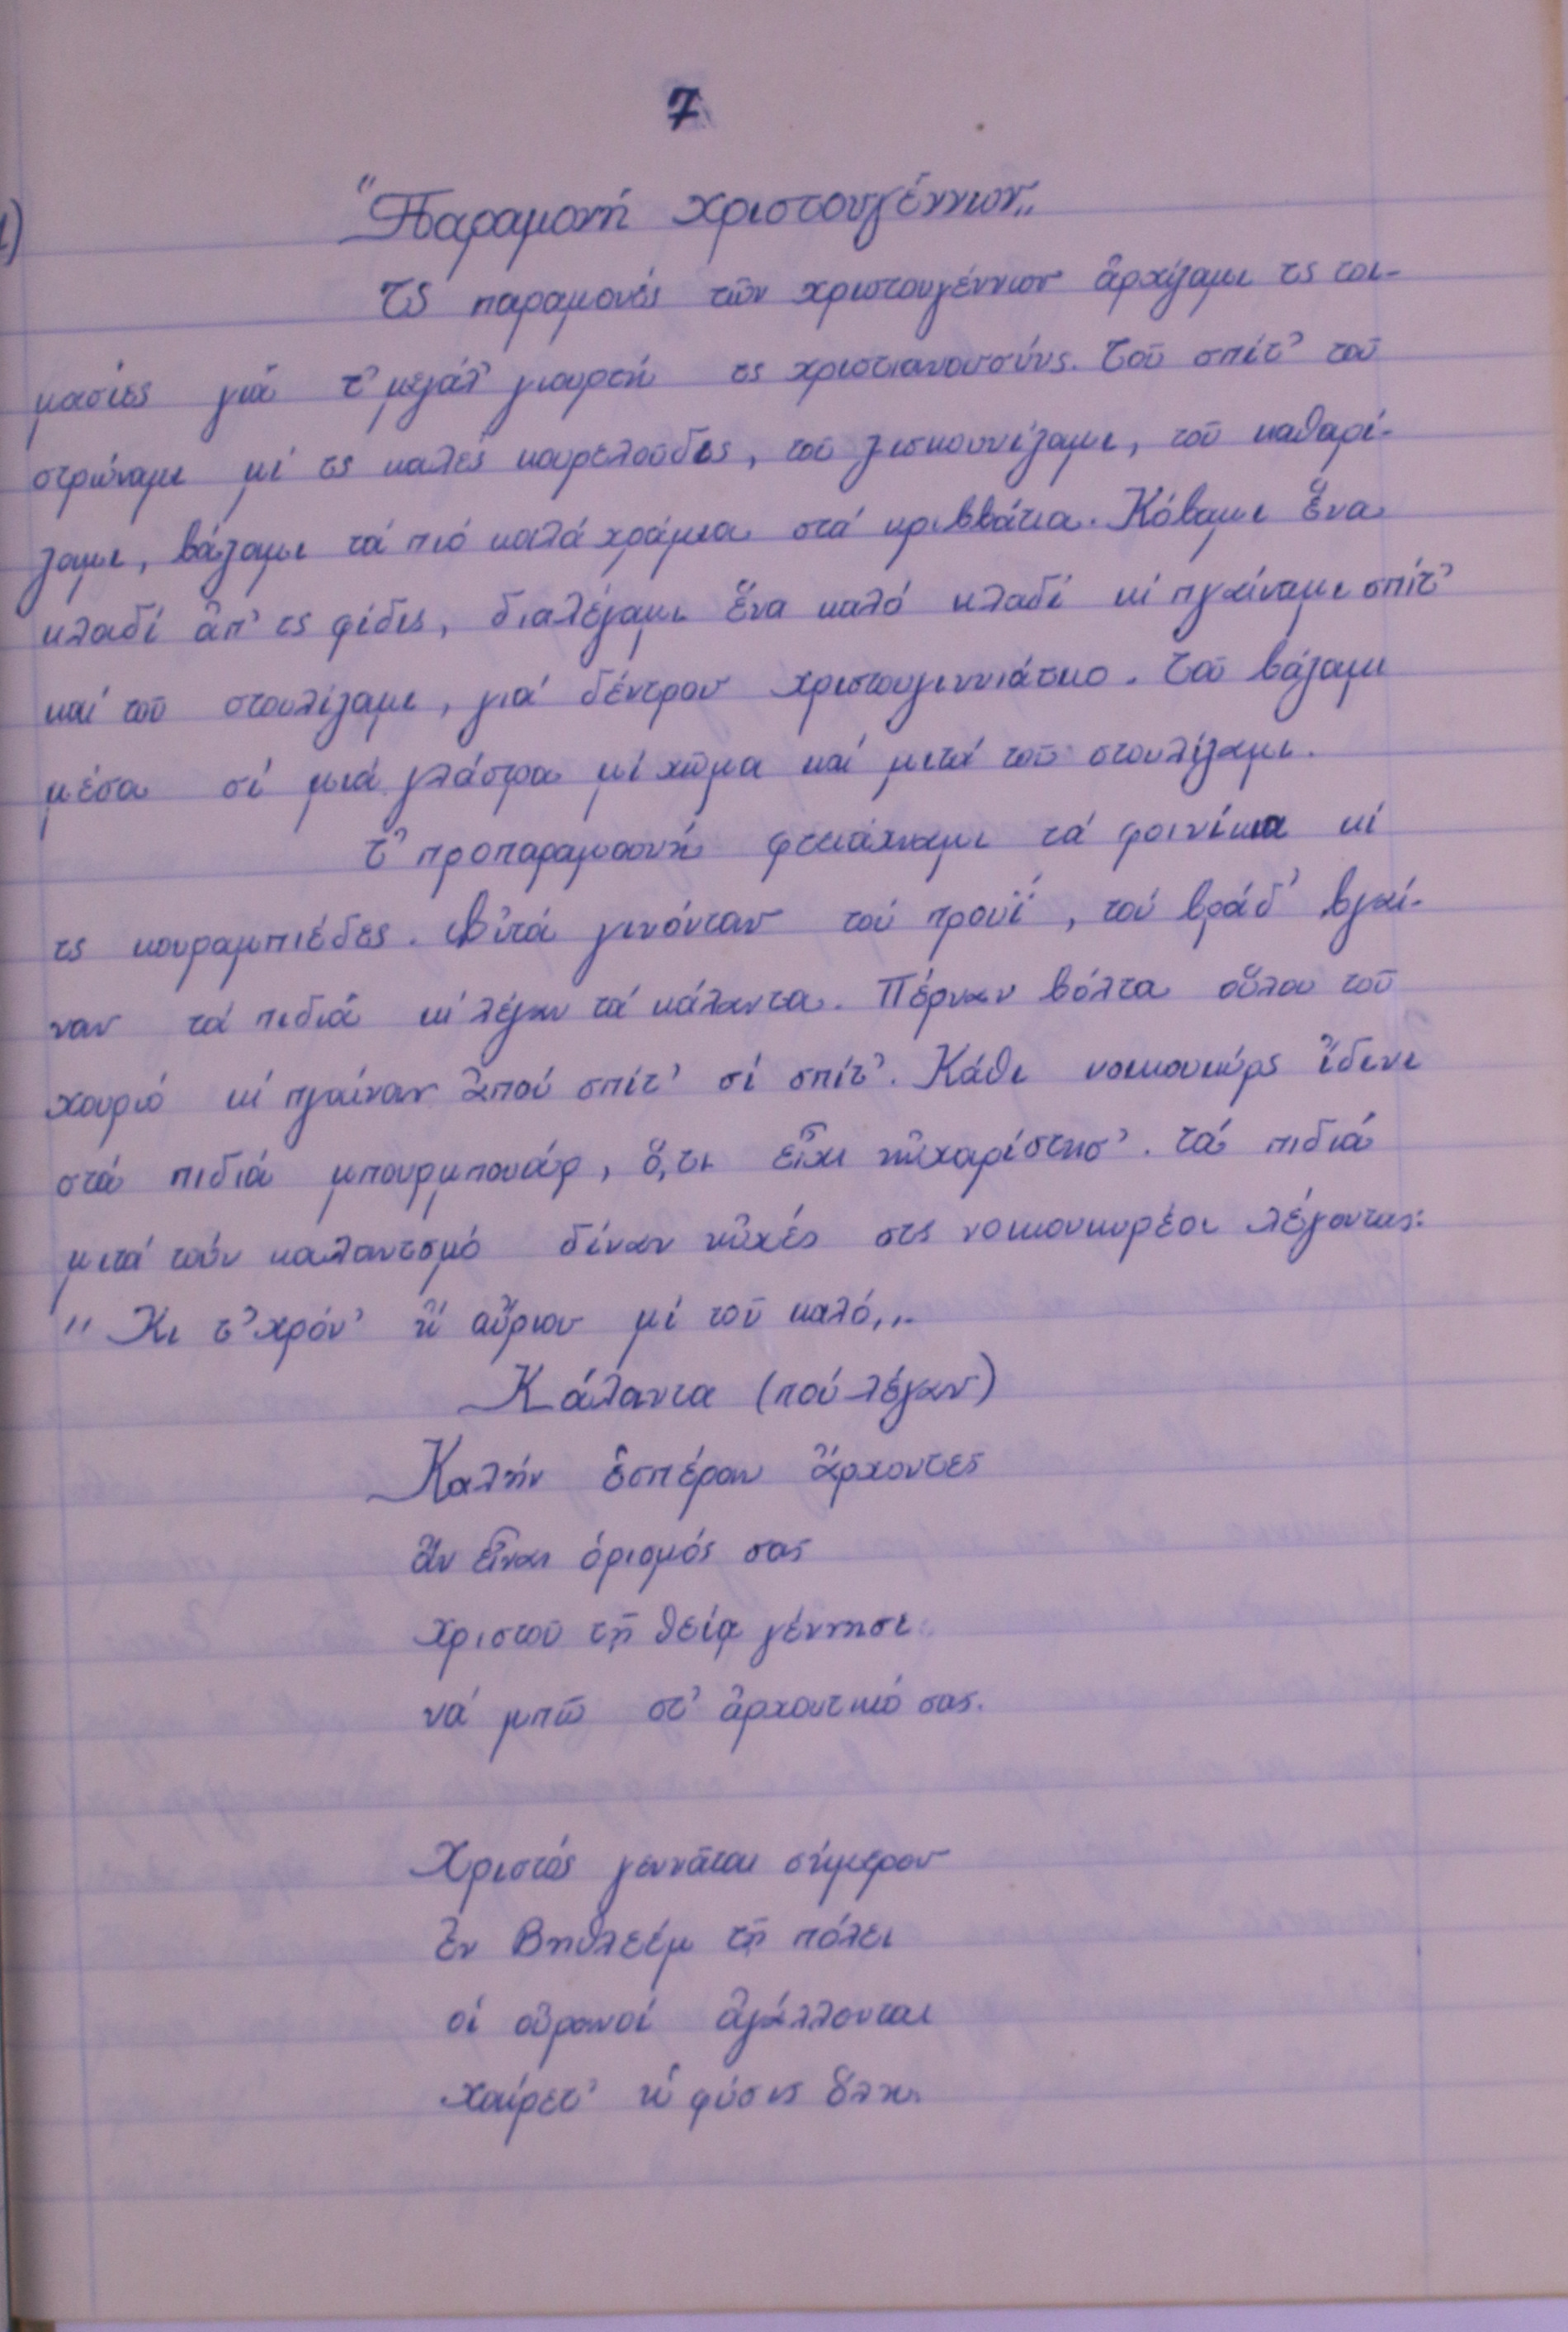 7
1)
"Παραμονή χριστουγέννων„
Τς παραμονές τῶν χριστουγέννων ἀρχίζαμι τς τοι-
μασίες γιά τ' μιγάλ' γιουρτή τς χριστιανουσύνς. Τοῦ σπίτ' τοῦ
στρώναμι μί τς καλές κουρελοῦδες, τοῦ ξισκουνίζαμι, τοῦ καθαρί-
ζαμι, βάζαμι τά πιό καλά χράμια στά κριββάτια. Κόβαμι ἕνα
κλαδί ἀπ' τς φίδις, διαλέγαμι ἕνα καλό κλαδί κί πγαίναμι σπίτ'
καί τοῦ στουλίζαμι, γιά δέντρου χριστουγιννιάτκο. Τοῦ βάζαμι
μέσα σί μιά γλάστρα μί χῶμα καί μιτά τοῦ στουλίζαμι.
Τ' προπαραμοονή φτιάχναμι τά φοινίκια κί
τς κουραμπιέδες. Αὐτά γινόνταν τού προυΐ, τού βράδ' βγαί-
ναν τά πιδιά κί λέγαν τά κάλαντα. Πέρναν βόλτα οὕλου τοῦ
χουριό κί πγαίναν ἀπού σπίτ' σί σπίτ'. Κάθι νοικουκύρς ἔδινι
στά πιδιά μπουρμπουάρ, ὅ,τι εἶχι ηὐχαρίστησ'. τά πιδιά
μιτά τούν καλαντσμό δίναν ηὐχές στς νοικουκυρέοι λέγοντας:
"Κι τ' χρόν' κἰ αὔριου μί τοῦ καλό„.
Κάλαντα (πού λέγαν)
Καλήν ἑσπέραν ἄρχοντες
ἄν εἶναι ὁρισμός σας
Χριστοῦ τῇ θείᾳ γέννησι
νά μπῶ στ' ἀρχοντικό σας.
Χριστός γεννᾶται σήμερον
ἐν Βηθλεέμ τῇ πόλει
οἱ οὐρανοί ἀγάλλονται
χαίρετ' ἡ φύσις ὅλη.